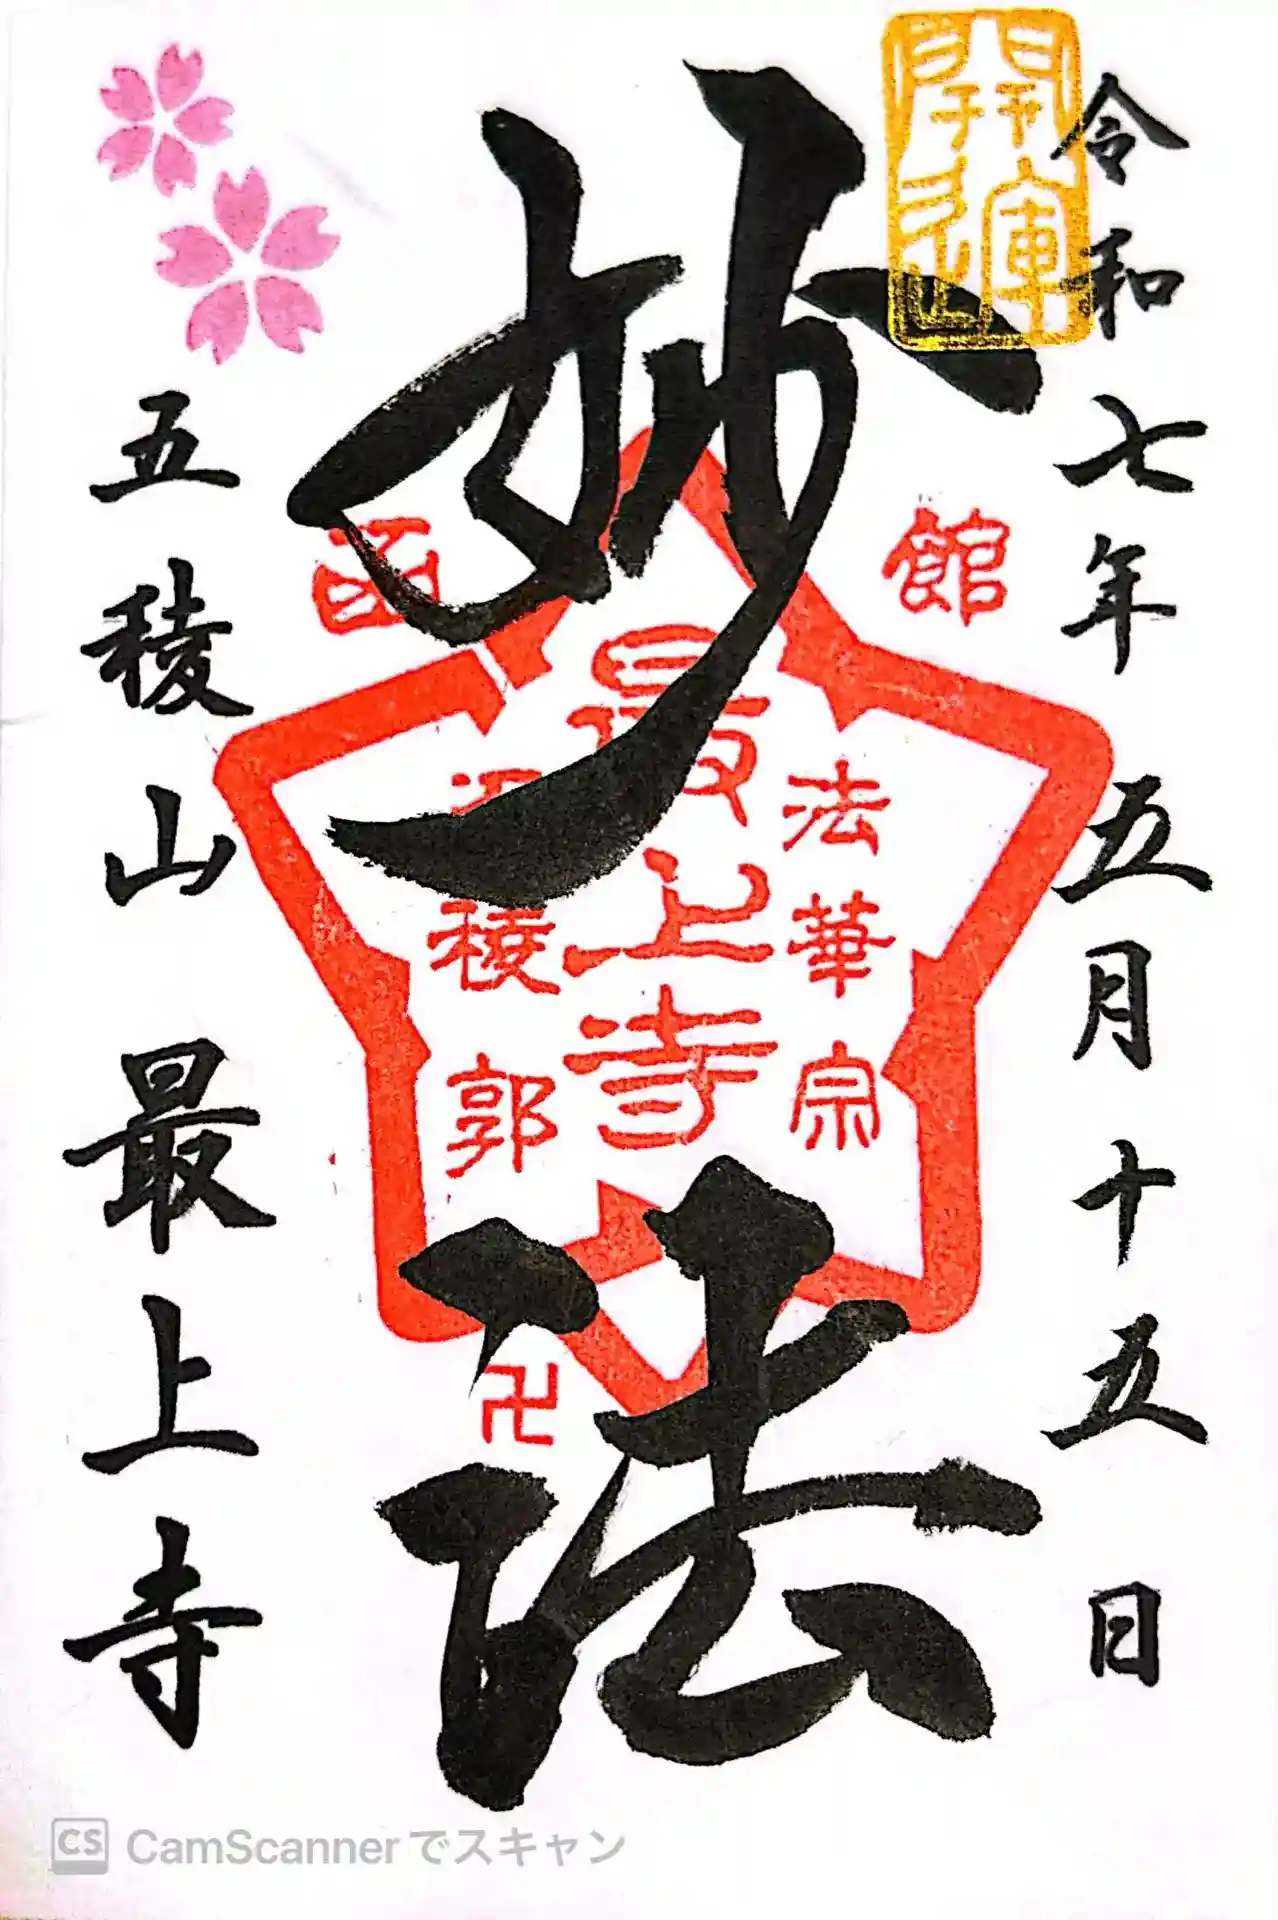 令和七年 五月十五日
開運
妙法
函館
法華宗
最上寺
稜郭
卍
五稜山 最上寺
CS CamScannerでスキャン